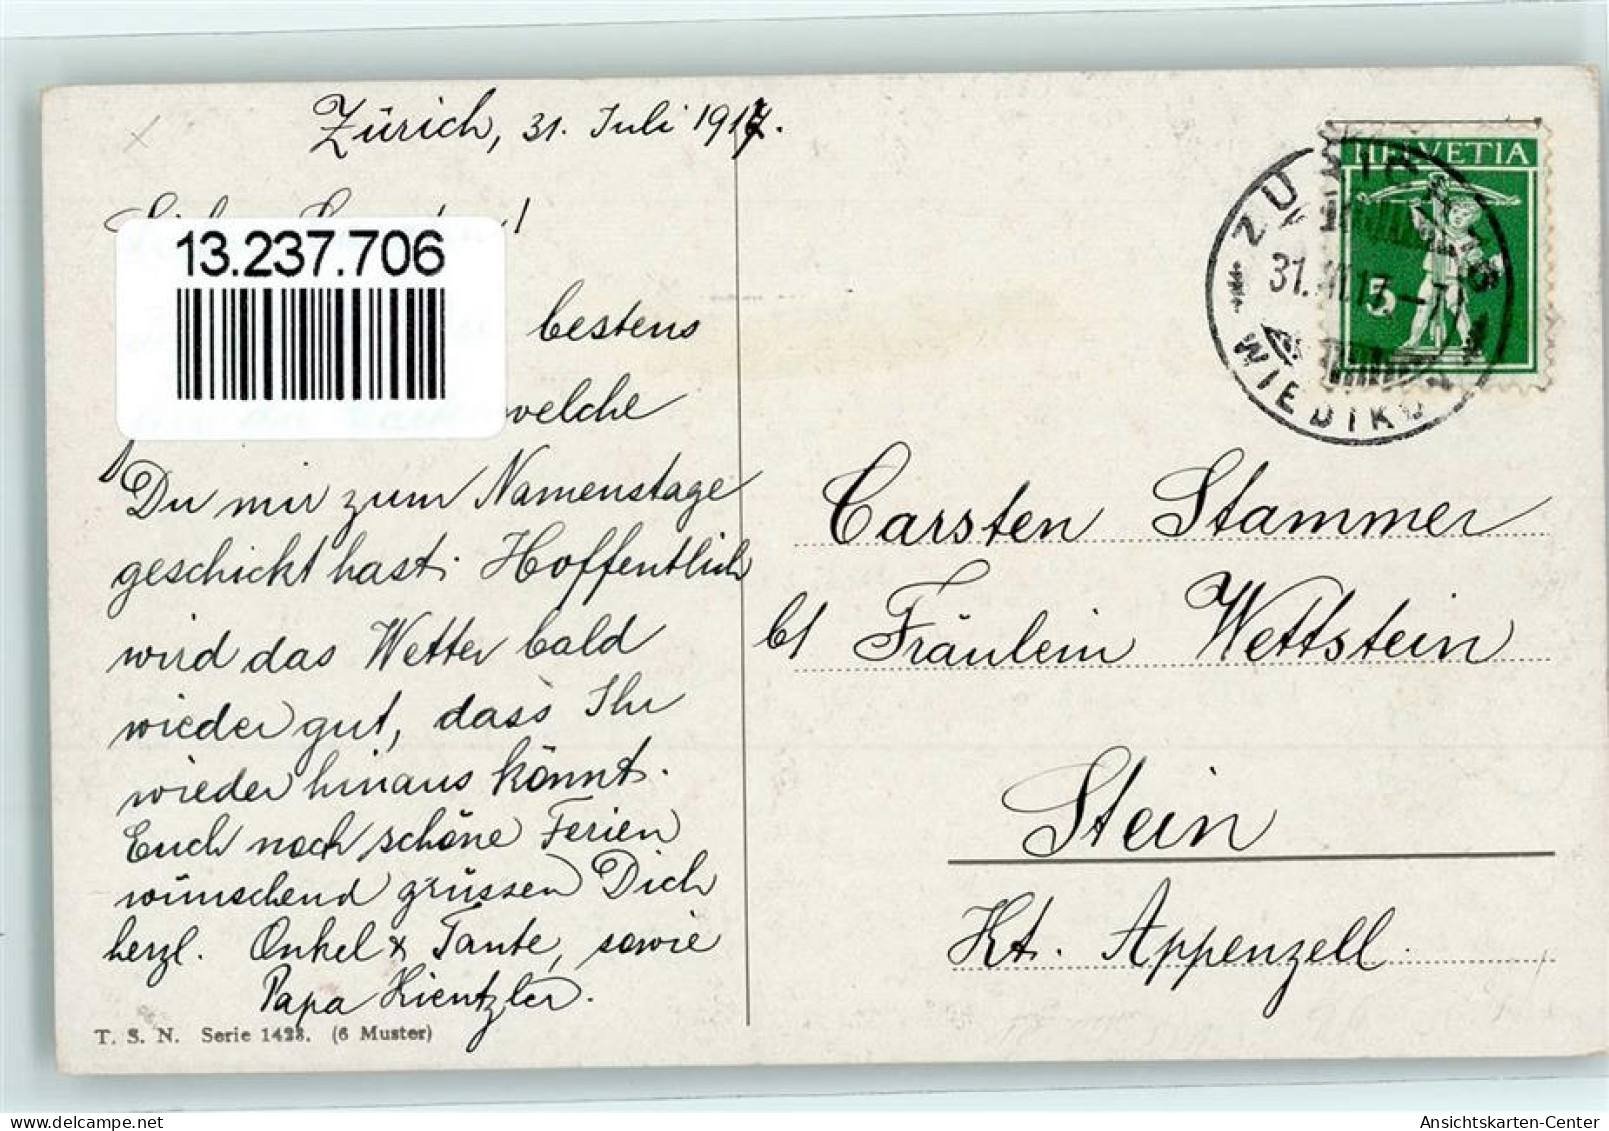 Zürich, 31. Juli 1917.
13.237.706
bestens
welche
Du mir zum Namenstage
geschickt hast. Hoffentlich
wird das Wetter bald
wieder gut, dass Ihr
wieder hinaus könnt.
Euch noch schöne Ferien
wünschend grüssen Dich
herzl. Onkel & Tante, sowie
Papa Kientzler.
T. S. N. Serie 1423. (6 Muster)
HELVETIA
5
WIEDIKON
Carsten Stammer
b/ Fräulein Wettstein
Stein
Kt. Appenzell.
Ansichtskarten-Center